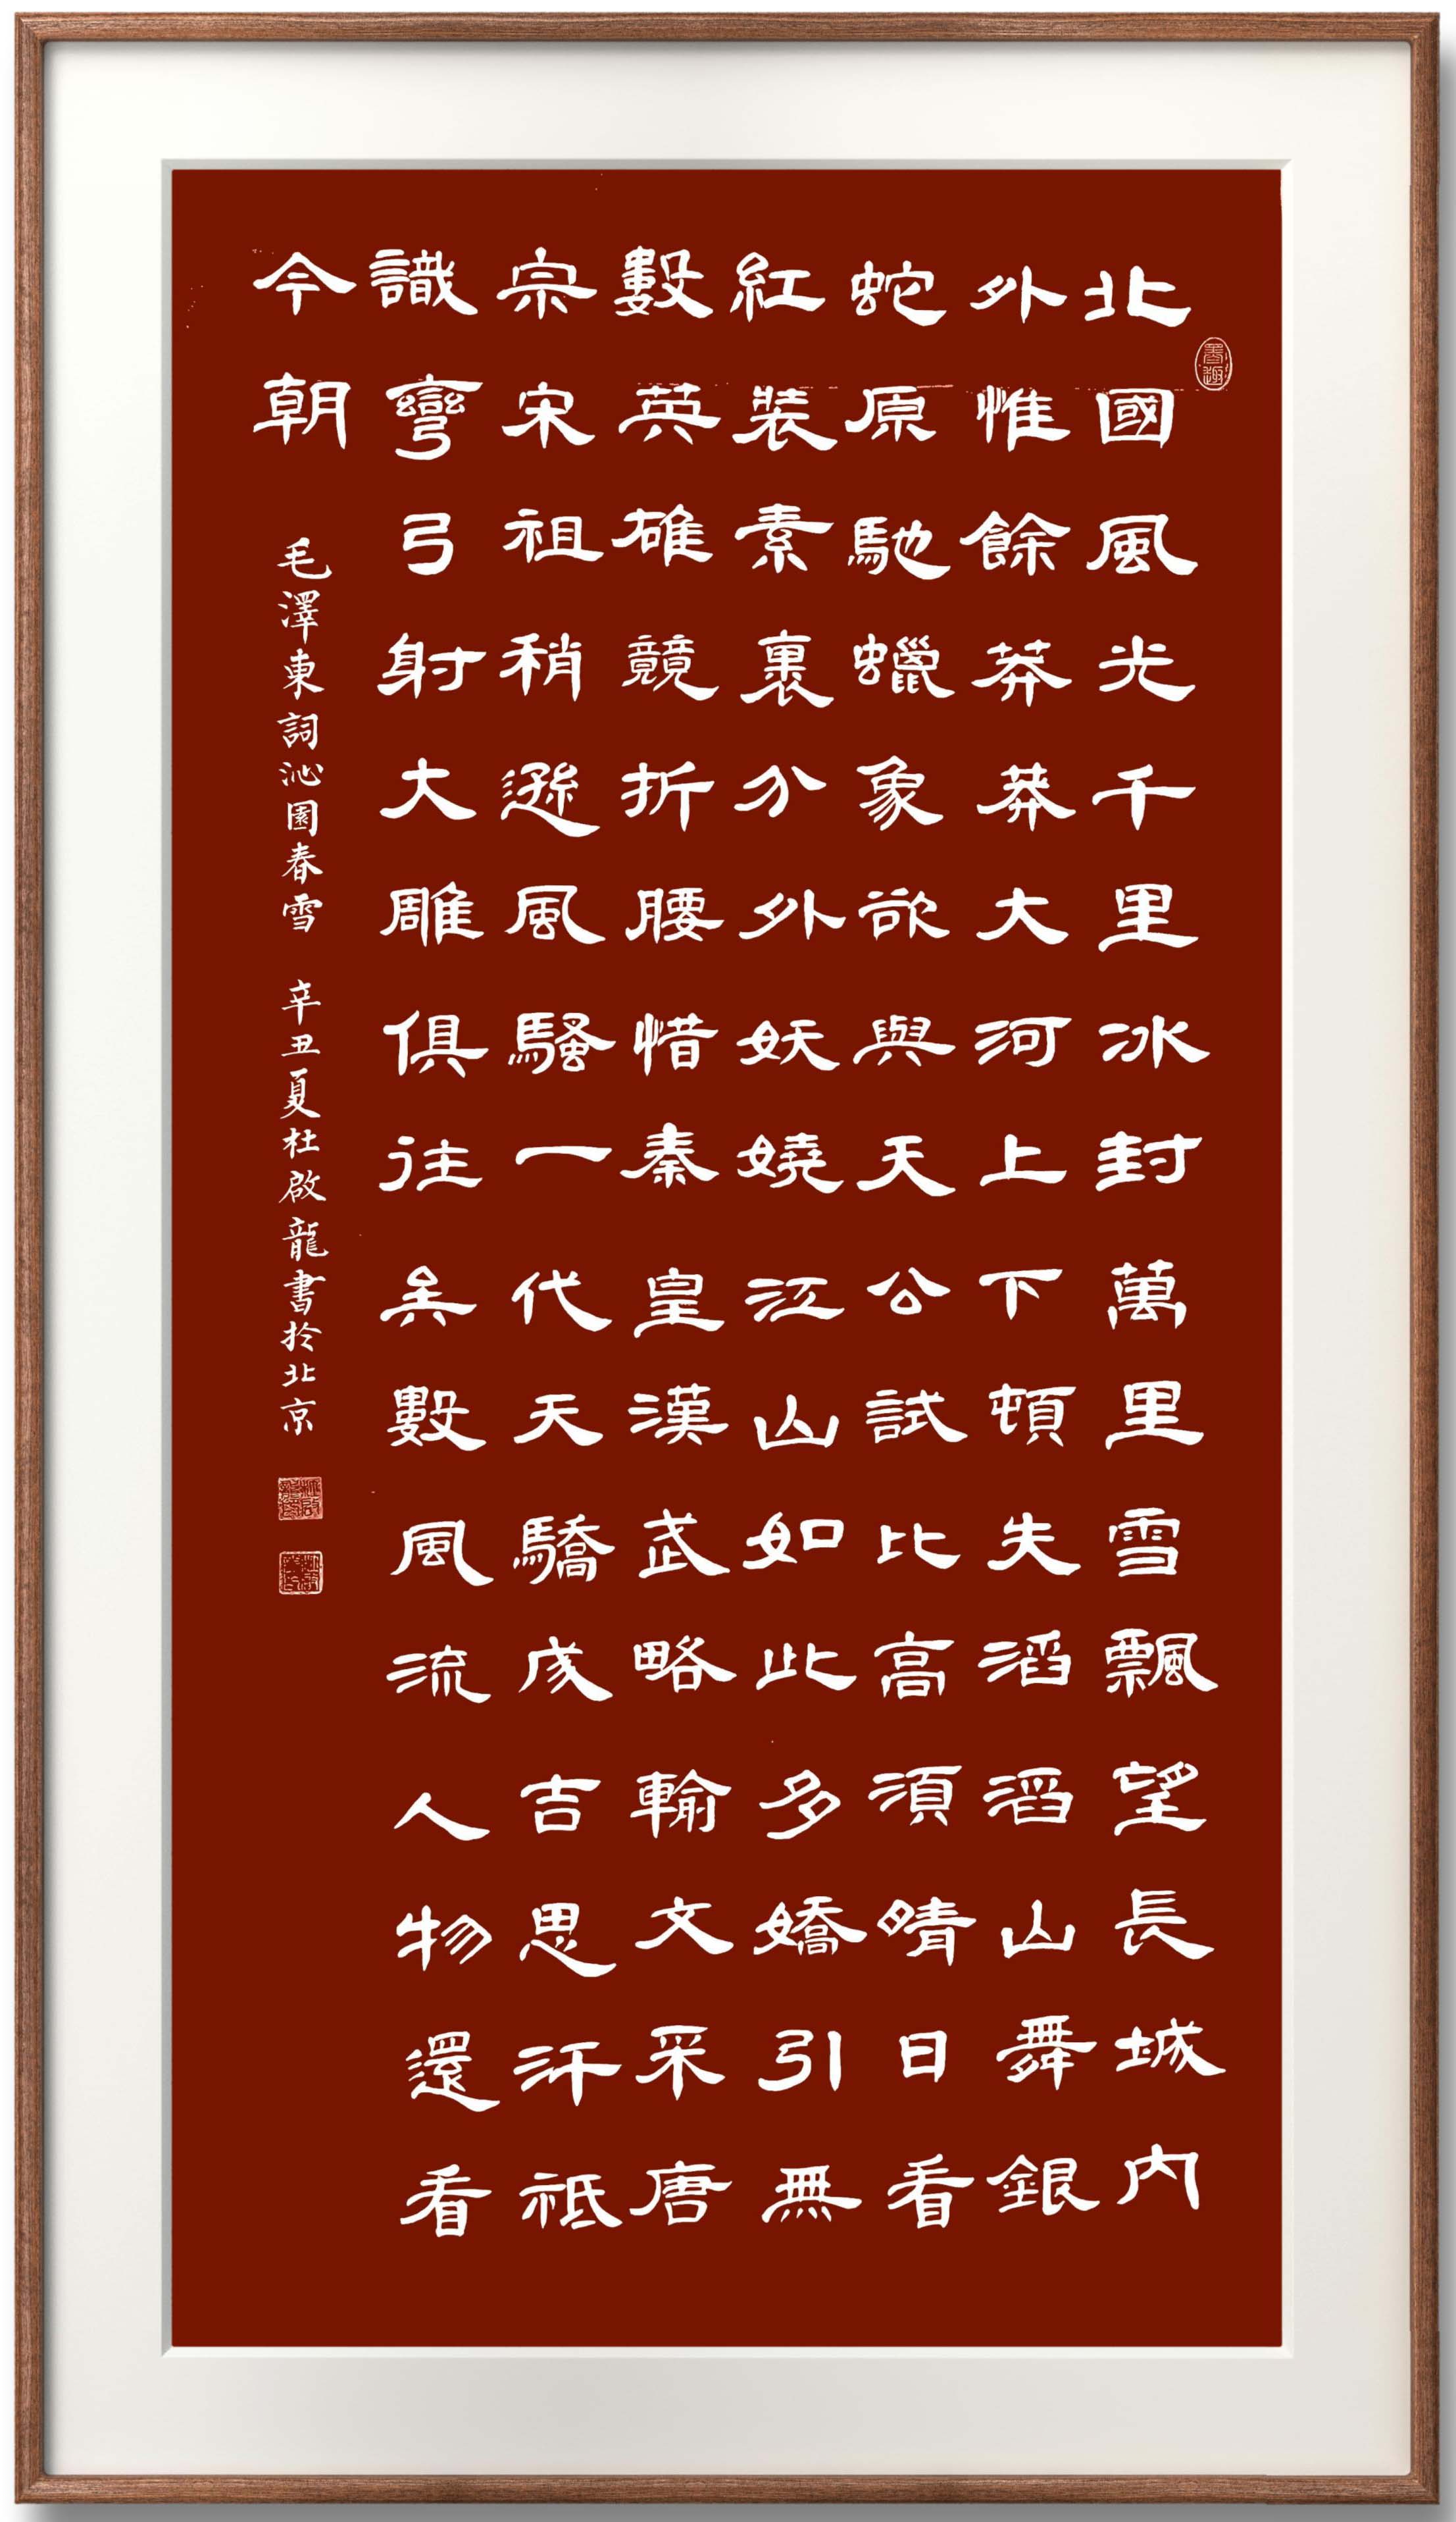 北國風光千里冰封萬里雪飄望長城內
外惟餘莽莽大河上下頓失滔滔山舞銀
蛇原馳蠟象欲與天公試比高須晴日看
紅裝素裹分外妖嬈江山如此多嬌引無
數英雄競折腰惜秦皇漢武略輸文采唐
宗宋祖稍遜風騷一代天驕成吉思汗祗
識彎弓射大雕俱往矣數風流人物還看
今朝
毛澤東詞沁園春雪 辛丑夏杜啟龍書於北京